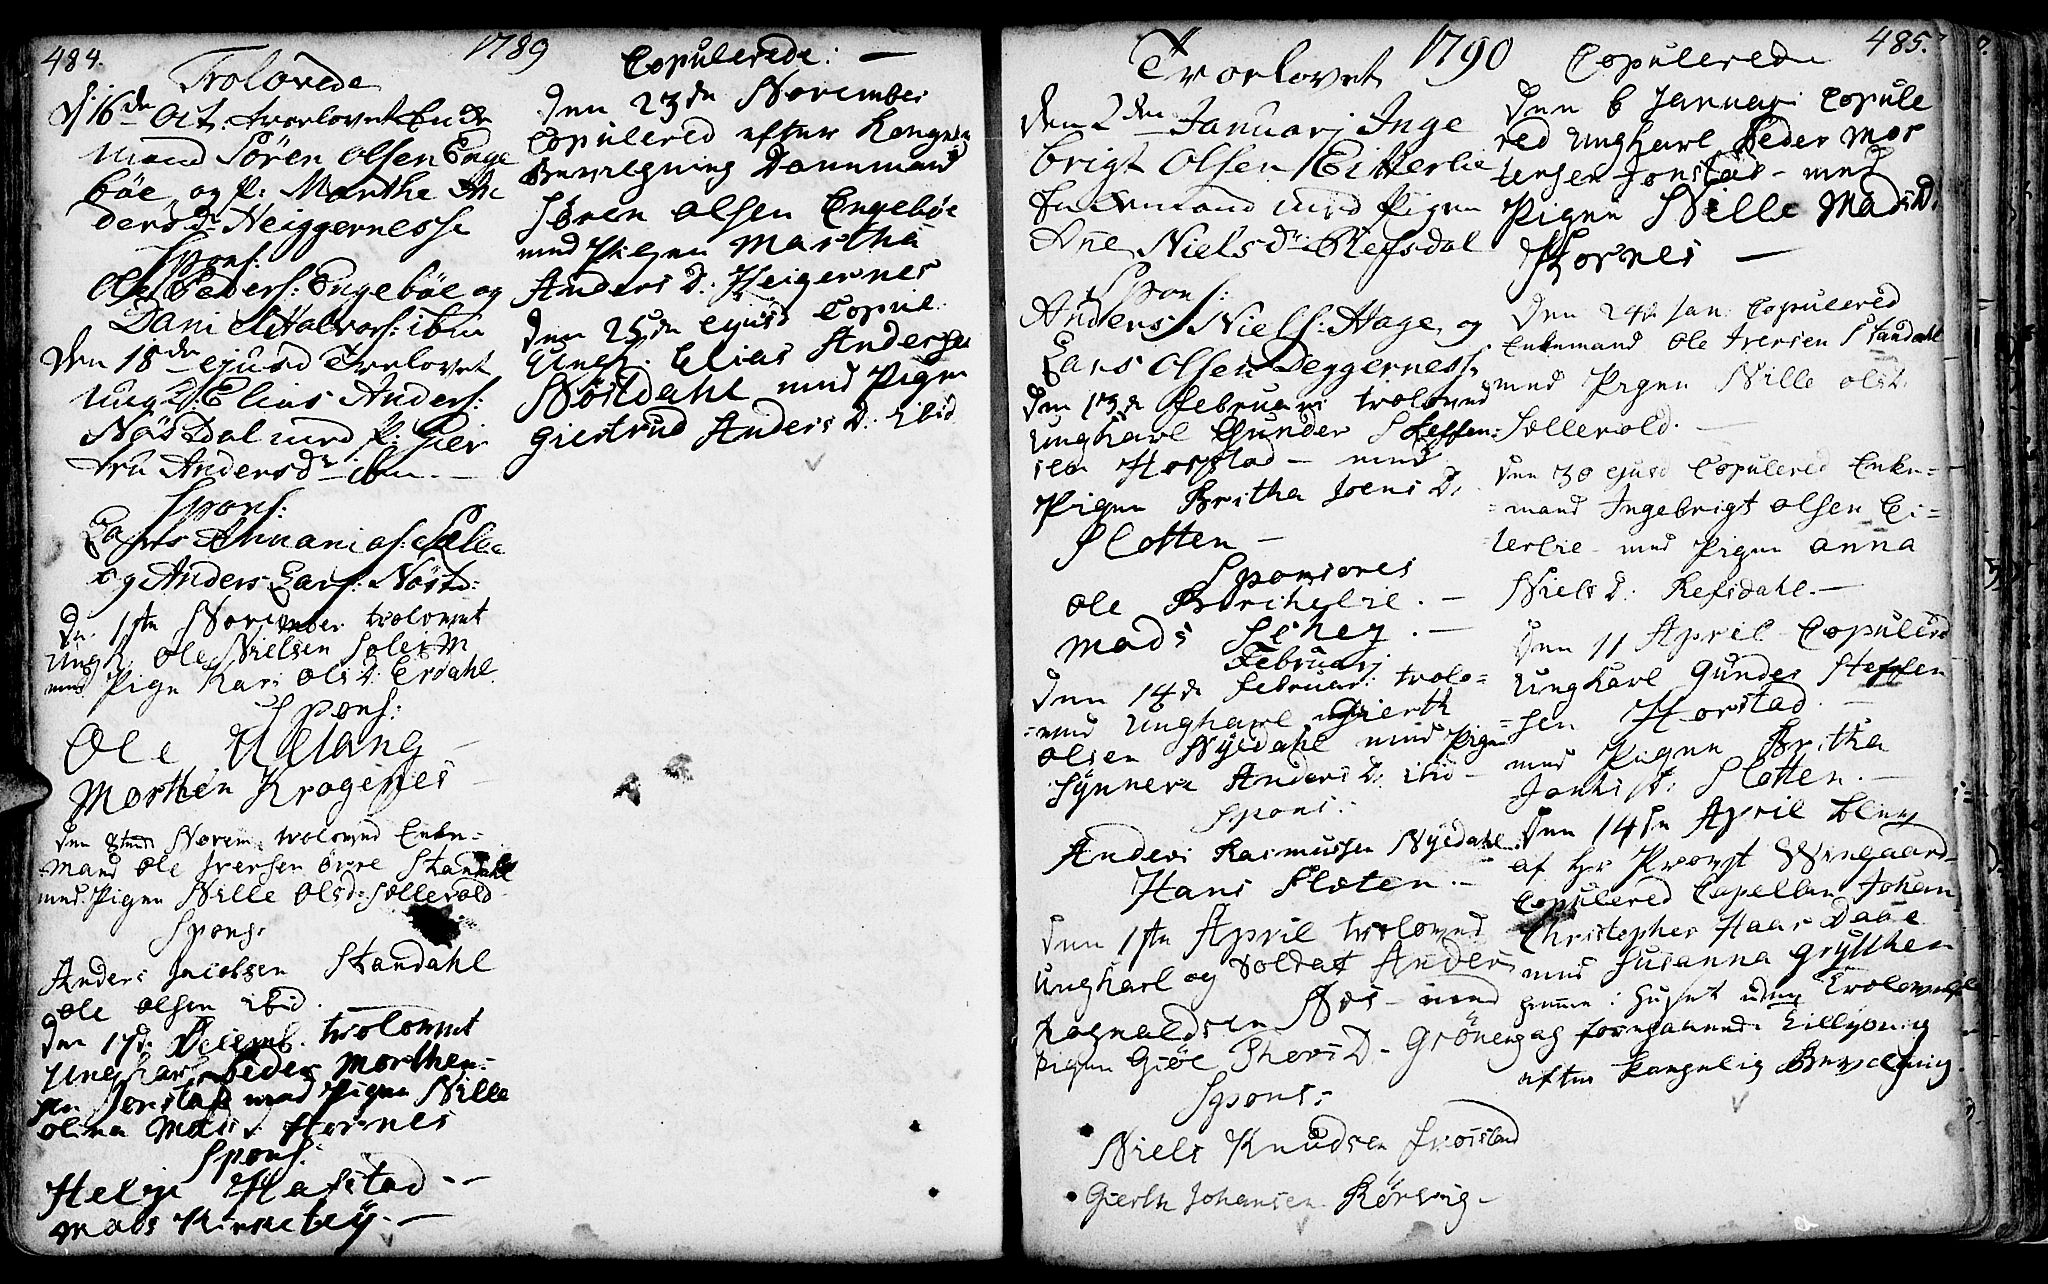 484.
1789
Trolovede
d: 16de Oct. trorlovet Enke
mand Sören Olsen Enge
böe, og P: Marthe An
dersd: Heiggernesse
Spons:
Ole Peders: Engebøe og
Daniel Halvors: ibm
Den 18de ejusd Trolovet
Ungk. Elias Anders:
Nösdal med P: Gier
tru Andersdr ibm. -
Spons:
Lars Annanias: Sælle
og Anders Lars: Nösd:
Dn. 1ste November trolovet
Ungk. Ole Nielsen Soleim
med Pign Kari Olsd: Erdahl
Spons:
Ole Helang
Morthen Kragenes
Den Novem. troloved Enke=
mand Ole Iversen övre Standahl
med Pigen Nille Olsd: Sællevold
Spons:
Anders Jacobsen Standahl
Ole Olsen ibid.
Den 17de Decemb. trolovet
Ungkarl Peder Morthen:
sen Jonstad med Pigen Nille
olina Mads d. Hornes
Spons:
Helge Hafstad --
Mads Kirkebÿ. -
Copulerede: -
Den 23de November
Copulered efter Kongelig
Bevilgning Dannemand
Søren Olsen Engebøe
med Pigen Martha
Anders D: Heigernes
Den 25de ejusd Copul.
Ungk. Elias Andersen
Nösdahl med Pigen
Giertrud Anders D. ibid
1790
485.
Trorlovet
Den 2den Januarj Inge
brigt Olsen Eitterlie
Enkemand med Pigen
Ane Nielsdr Refsdal
Spons:
Anders Niels: Hage, og
Lars Olsen Deggerness.
Den 13de Februari troloved
Ungkarl Gunder Steffen=
sen Horstad - med
Pigen Britha Joens D.
Slotten -
Sponsores
Ole Birchelie. -
Mads Schey. -
Februarj
Den 14de Februar: trolo=
=ved Ungkarl Gierth
Olsen Nyedahl med Pigen
Synneve Anders D: ibid -
Spons:
Anders Rasmussen Nyedahl
Hans Slotten. -
Den 1ste April troloved
Ungkarl og Soldat Anders
Ragnaldsen Nös - med
Pigen Giöe Thers D - Grönerg
Spons:
Niels Knudsen Frøisland
Gierth Johansen Rørvig -
Copulerede
Den 6 Januari Copule
red Ungkarl Peder Mor
tensen Jonstad - med
Pigen Nille Mads D.
Hornes -
Den 24de Jan: Copulered
Enkemand Ole Iversen Standahl
med Pigen Nille Olsd.
Sællevold. -
Den 30 ejusd Copulered Enke=
=mand Ingebrigt Olsen Ei=
terlie - med Pigen Anna
Niels D: Refsdahl. -
Den 11 April Copulered
Ungkarl Gunder Steffen
=sen Horstad. -
med Pigen Britha
Jonks D: Slotten. -
Den 14de April blev
af Hr Provst Wingaard
Copulered Capellan Johan
Christopher Haar Daae
med Susanna Grÿthen
hemme i Huset uden Trolovelse
og foregaaende Lillysning
efter Kongelig Bevilgning.